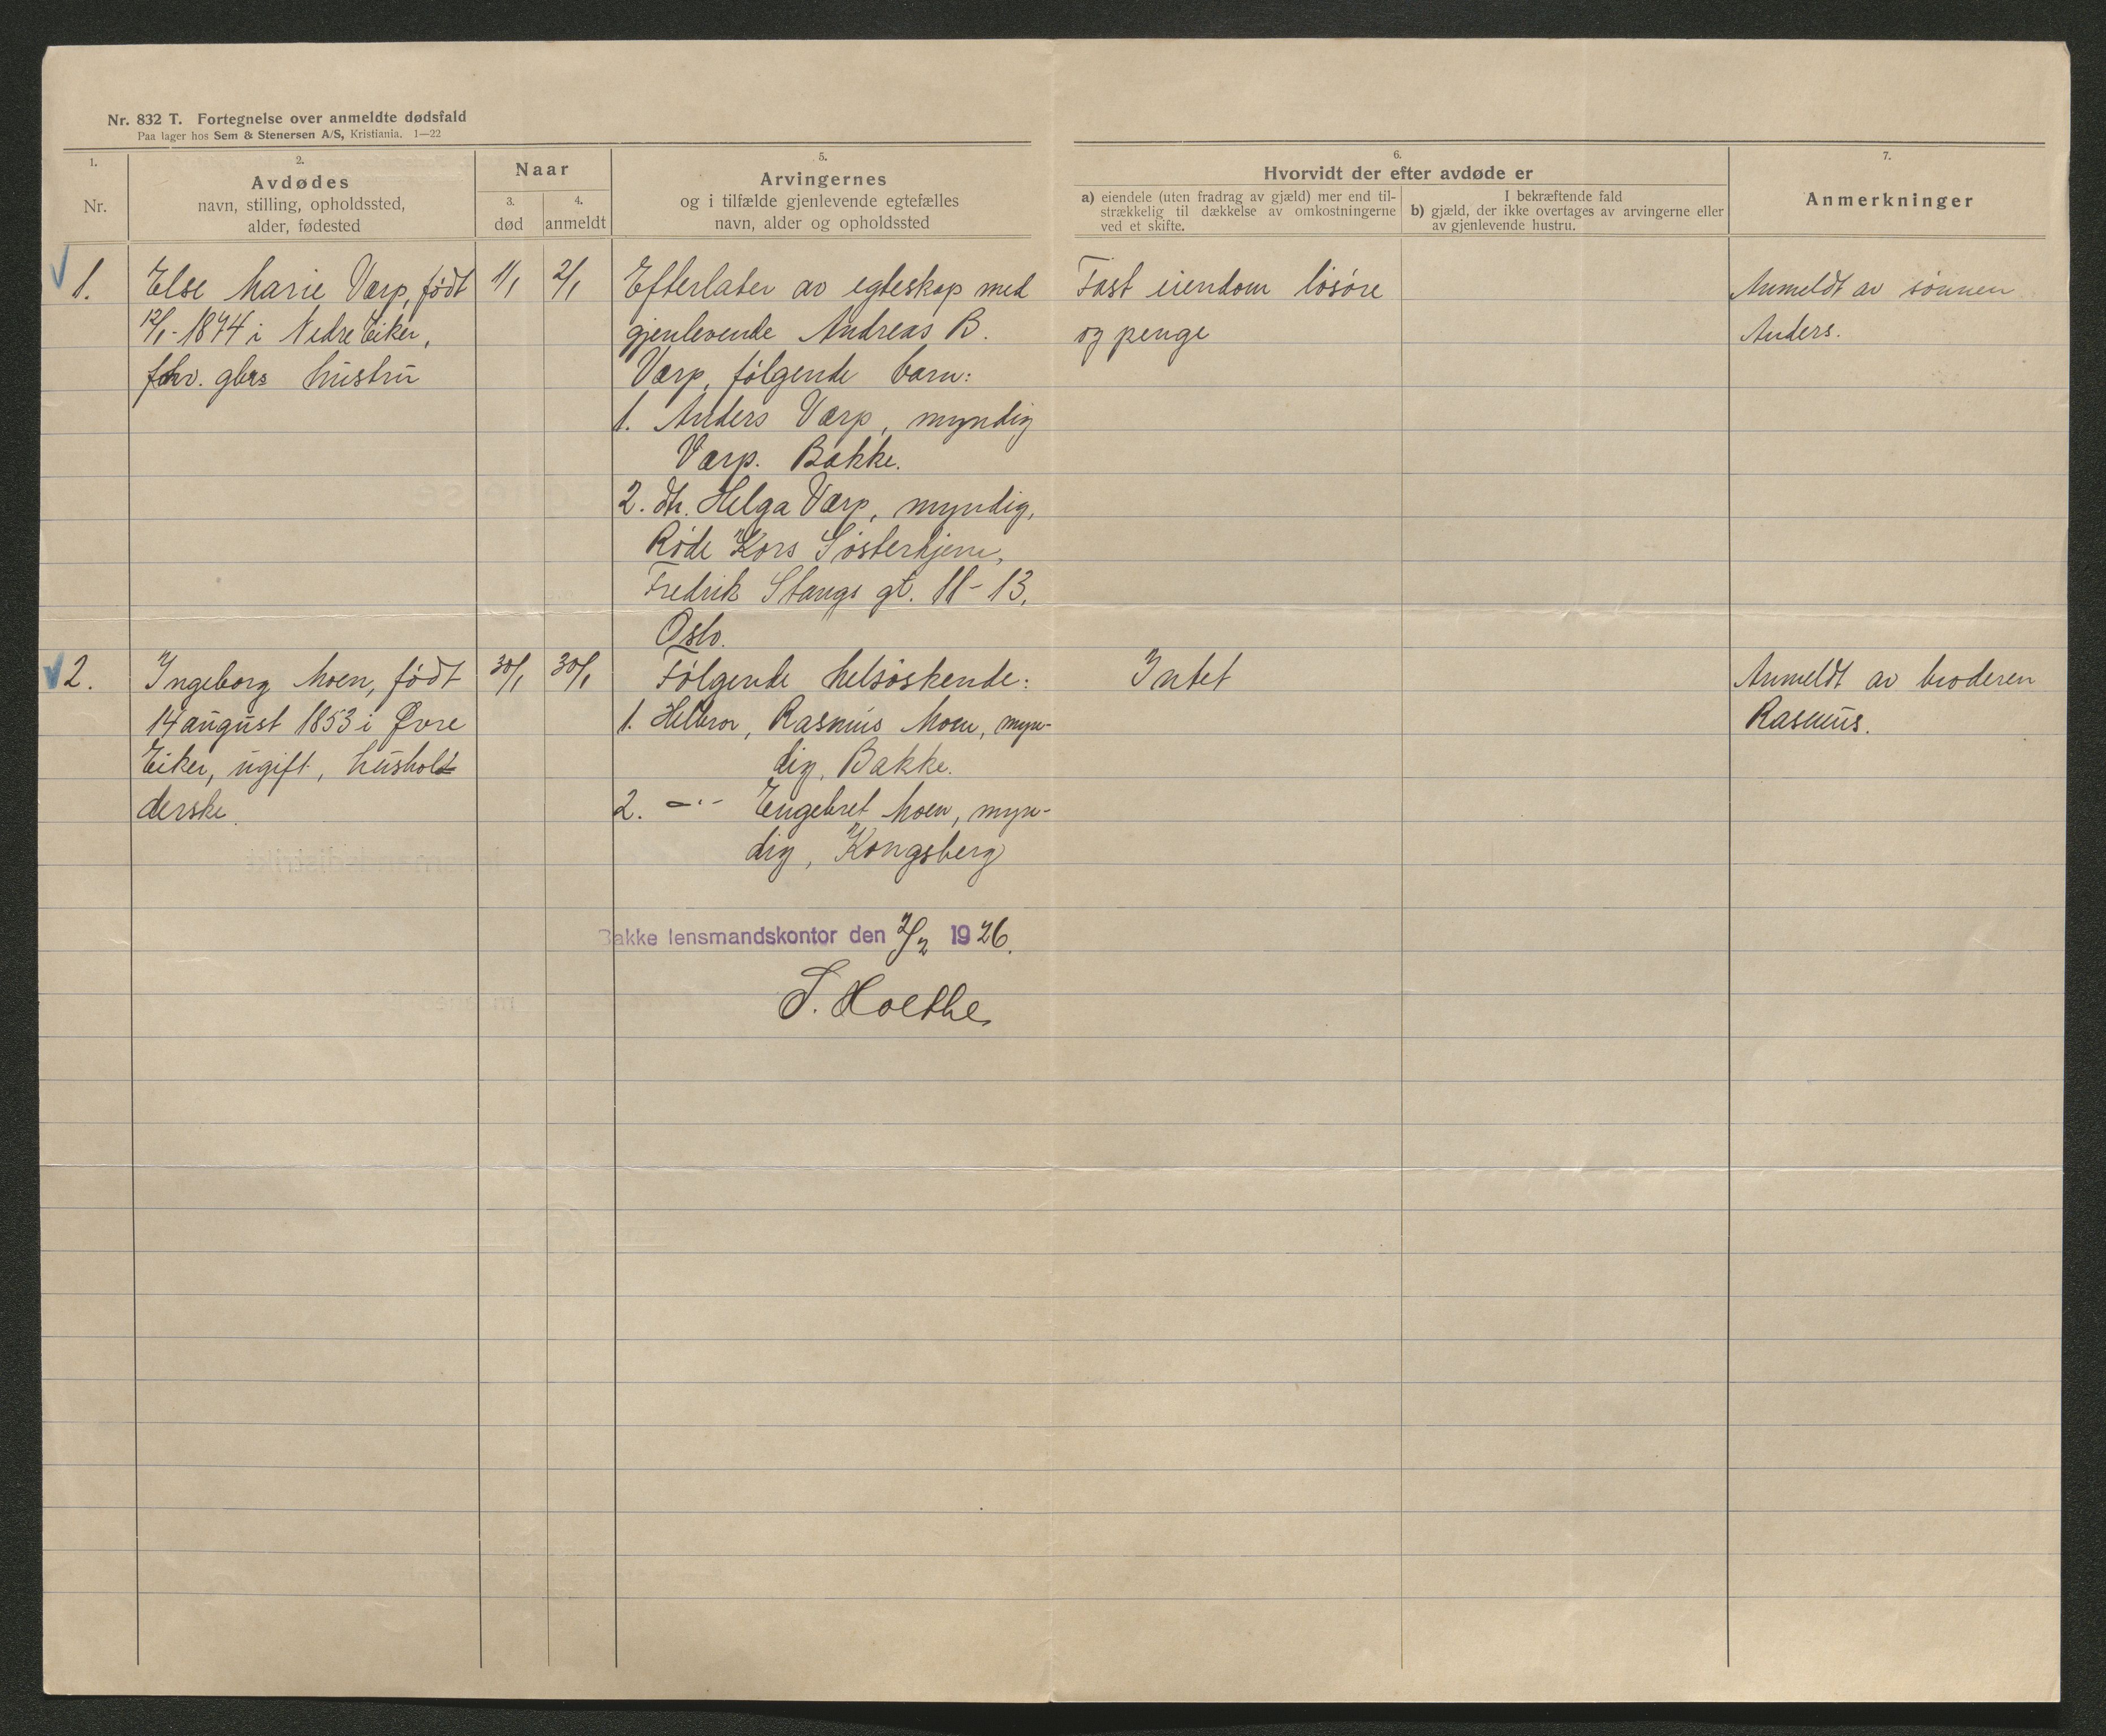 Nr. 832 T. Fortegnelse over anmeldte dødsfald
Paa lager hos Sem & Stenersen A/S, Kristiania. 1—22
1.
Nr.
2.
Avdødes
navn, stilling, opholdssted,
alder, fødested
Naar
3.
død
4.
anmeldt
5.
Arvingernes
og i tilfælde gjenlevende egtefælles
navn, alder og opholdssted
6.
Hvorvidt der efter avdøde er
a) eiendele (uten fradrag av gjæld) mer end til-
strækkelig til dækkelse av omkostningerne
ved et skifte.
I bekræftende fald
b) gjæld, der ikke overtages av arvingerne eller
av gjenlevende hustru.
7.
Anmerkninger
1.
Else Marie Varp, født
12/1-1874 i Nedre Eiker,
fhv. gbrs hustru
1/1
2/1
Efterlater av egteskap med
gjenlevende Andreas B.
Varp, følgende barn:
1. Anders Varp, myndig
Varp. Bakke.
2. dtr. Helga Varp, myndig,
Røde Kors Søsterhjem,
Fredrik Stangs gt. 11-13,
Oslo.
Fast eiendom løsøre
og penge
Anmeldt av sønnen
Anders.
2.
Ingeborg Moen, født
14 august 1853 i Øvre
Eiker, ugift, hushol
derske.
30/1
30/1
Følgende helsøskende:
1. Helbror, Rasmus Moen, myn-
dig, Bakke.
2. -"- Engebret Moen, myn-
dig, Kongsberg
Intet
Anmeldt av broderen
Rasmus.
Bakke lensmandskontor den 2/2 1926.